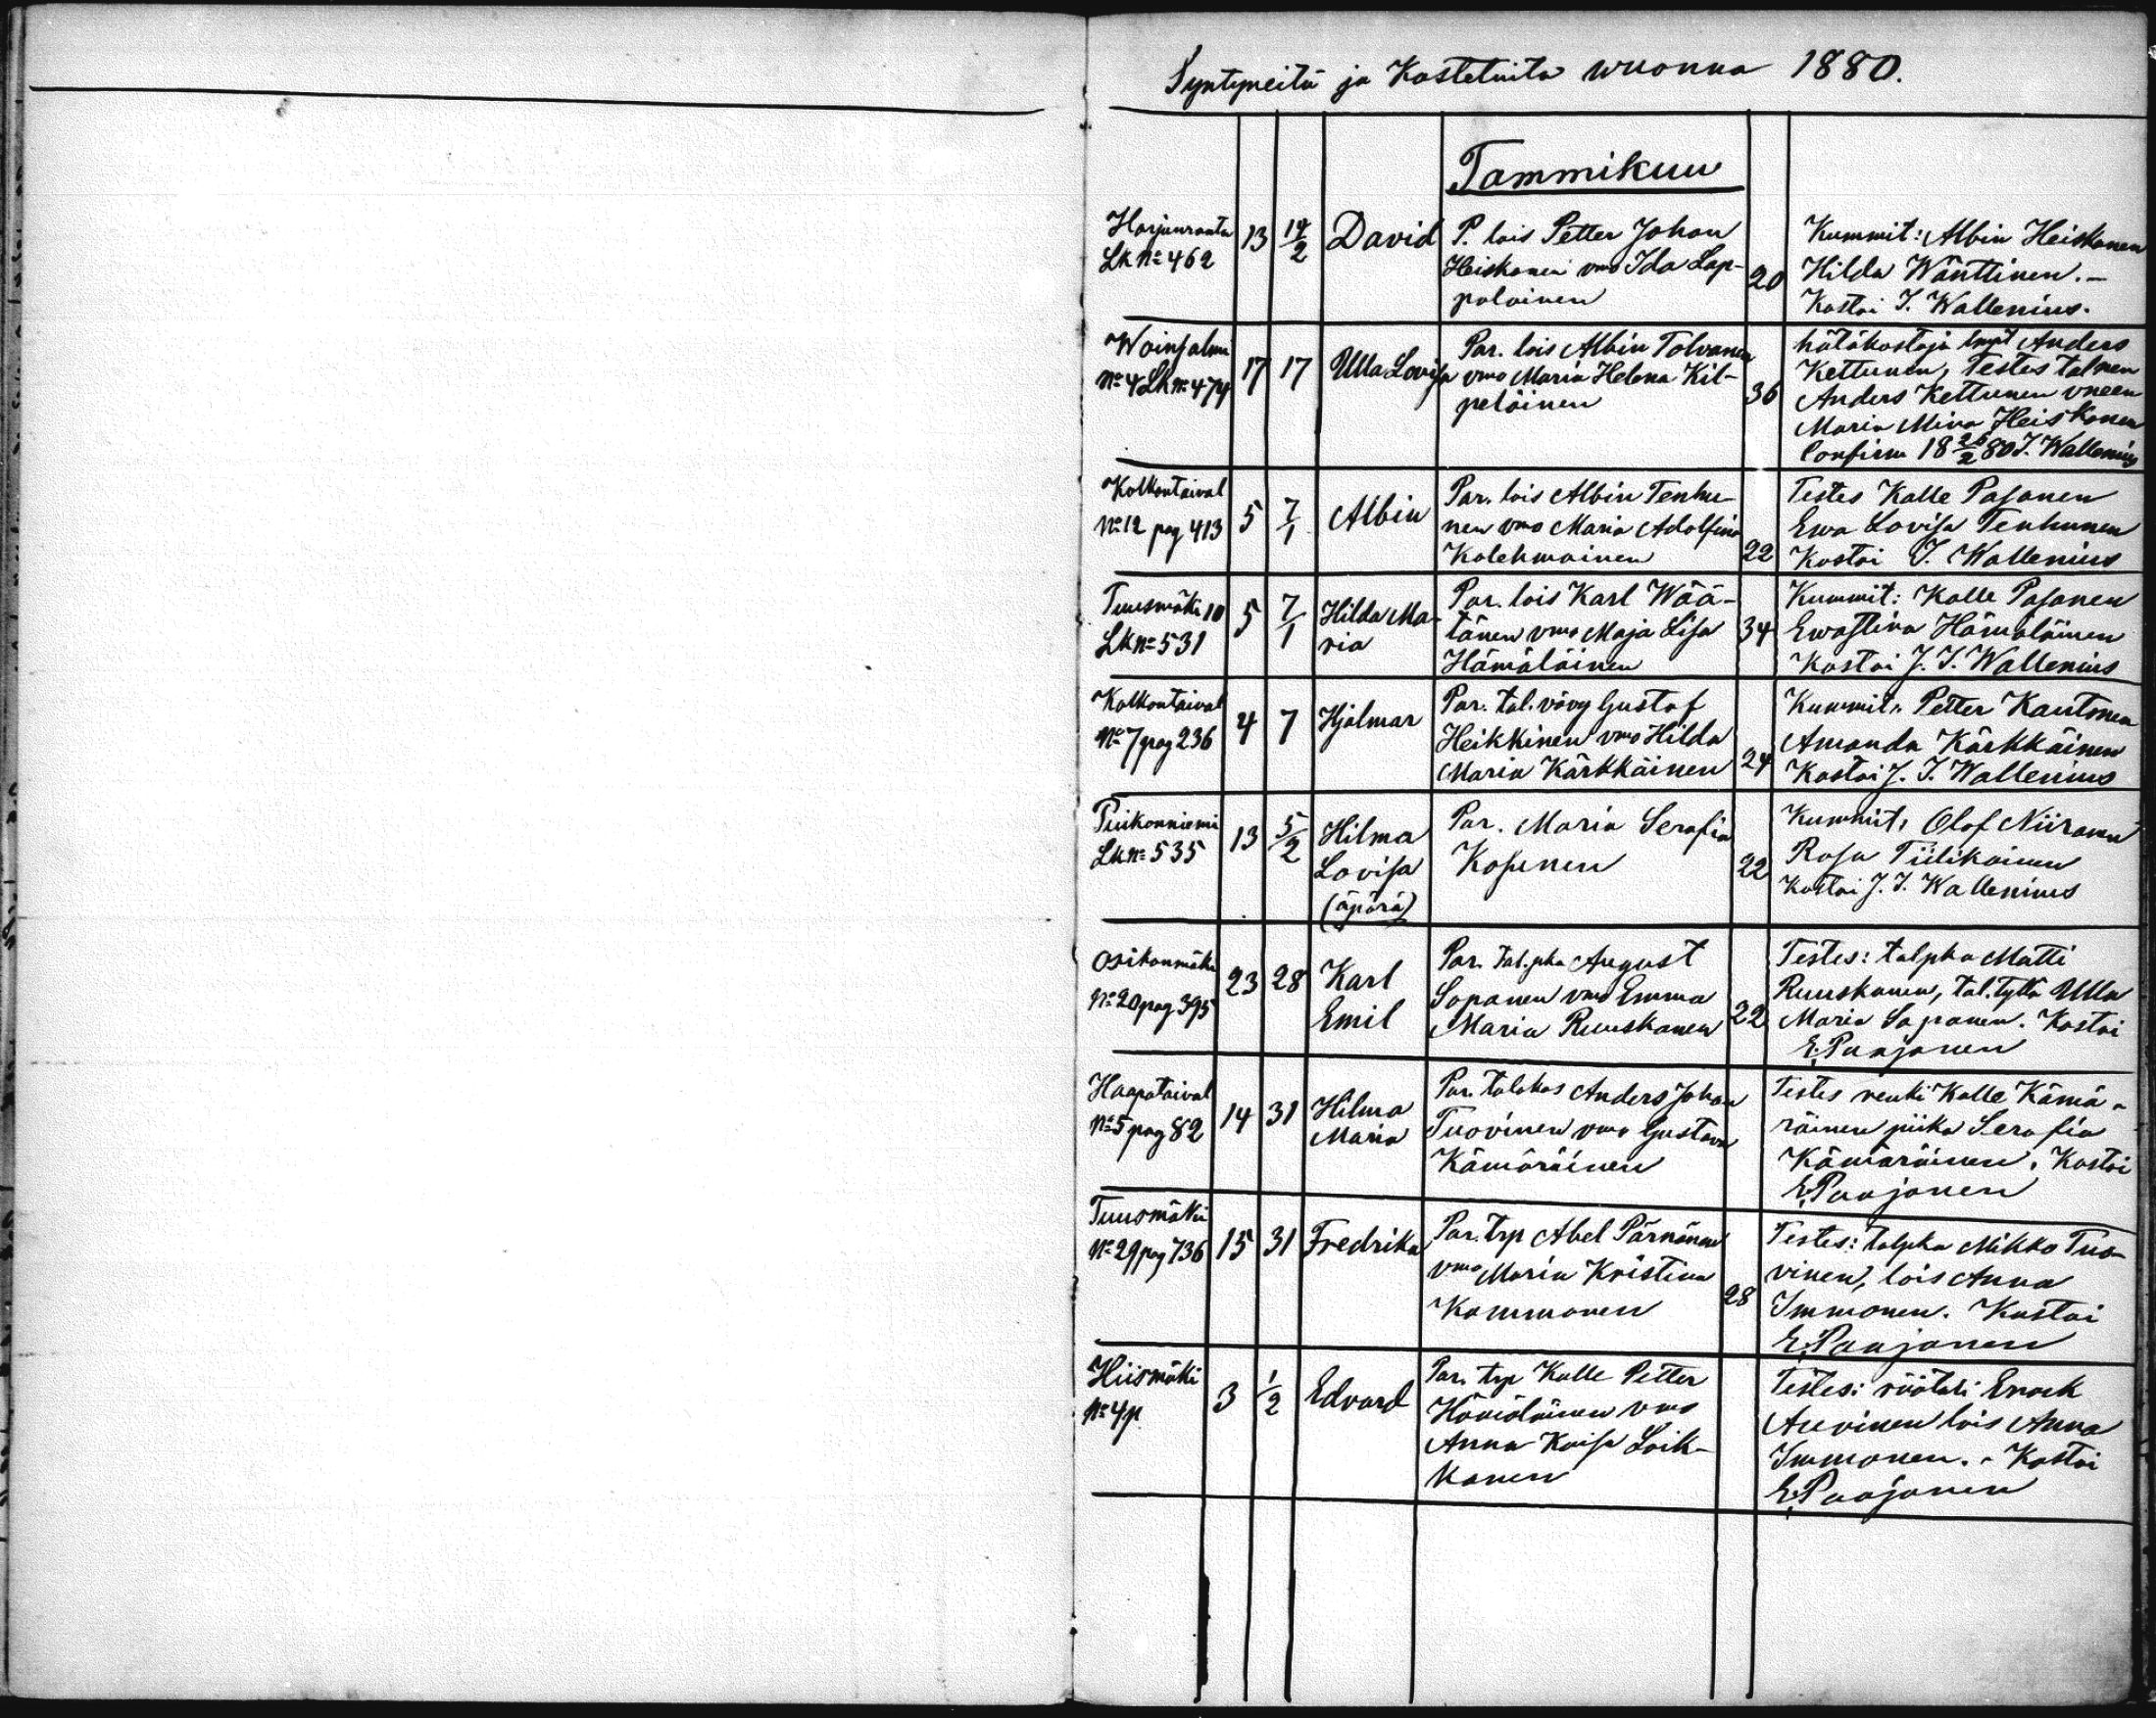 Syntyneitä ja Kastetuita wuonna 1880.
Tammikuu
Harjunranta
Lk No 462
13
14/2
David
P. lois Petter Johan
Heiskanen vmo Ida Lap-
palainen
20
Kummit: Albin Heiskanen
Hilda Wänttinen. -
Kastoi I. Wallenius.
Woinsalmi
No 4 Lk No 474
17
17
Ulla Lovisa
Par. lois Albin Tolvanen
vmo Maria Helena Kil-
peläinen
36
hätäkastaja Anders
Kettunen, Testes talmen
Anders Kettunen vneen
Maria Miina Heiskanen
Confirm 18 26/2 80 I. Wallenius
Kolkontaival
No 12 pag 413
5
7/1
Albin
Par. lois Albin Tenhu-
nen vmo Maria Adolfina
Kolehmainen
22
Testes Kalle Pasanen
Ewa Lovisa Tenhunen
Kastoi I. Wallenius
Tuusmäki 10
Lk No 531
5
7/1
Hilda Ma-
ria
Par. lois Karl Wää-
tänen vmo Maja Lisa
Hämäläinen
34
Kummit: Kalle Pasanen
Ewastina Hämäläinen
Kastoi J. I. Wallenius
Kolkontaival
No 7 pag 236
4
7
Hjalmar
Par. tal. vävy Gustaf
Heikkinen vmo Hilda
Maria Kärkkäinen
24
Kummit: Petter Kautonen
Amanda Kärkkäinen
Kastoi J. I. Wallenius
Piikonniemi
Lk No 535
13
5/2
Hilma
Lovisa
(äpärä)
Par. Maria Serafia
Kosunen
22
Kummit: Olof Niiranen
Rosa Tiilikainen
Kastoi J. I. Wallenius
Osikonmäki
No 20 pag 395
23
28
Karl
Emil
Par. tal.pka August
Sopanen vmo Emma
Maria Ruuskanen
22
Testes: talpka Matti
Ruuskanen, tal. tyttö Ulla
Maria Sapanen. Kastoi
E. Paajanen
Haapataival
No 5 pag 82
14
31
Hilma
Maria
Par. talokas Anders Johan
Tuovinen vmo Gustava
Kämäräinen
Testes renki Kalle Kämä-
räinen piika Serafia
Kämäräinen. Kastoi
E. Paajanen
Tuusmäki
No 29 pag 736
15
31
Fredrika
Par. trp Abel Pärnänen
vmo Maria Kristina
Kammonen
28
Testes: talpka Mikko Tuo-
vinen, lois Anna
Immonen. Kastoi
E. Paajanen
Hiismäki
No 4 p
3
1/2
Edvard
Par. trp Kalle Petter
Hämäläinen vmo
Anna Kaisa Loik-
kanen
Testes: räätäli Enock
Auvinen lois Anna
Immonen. - Kastoi
E. Paajanen